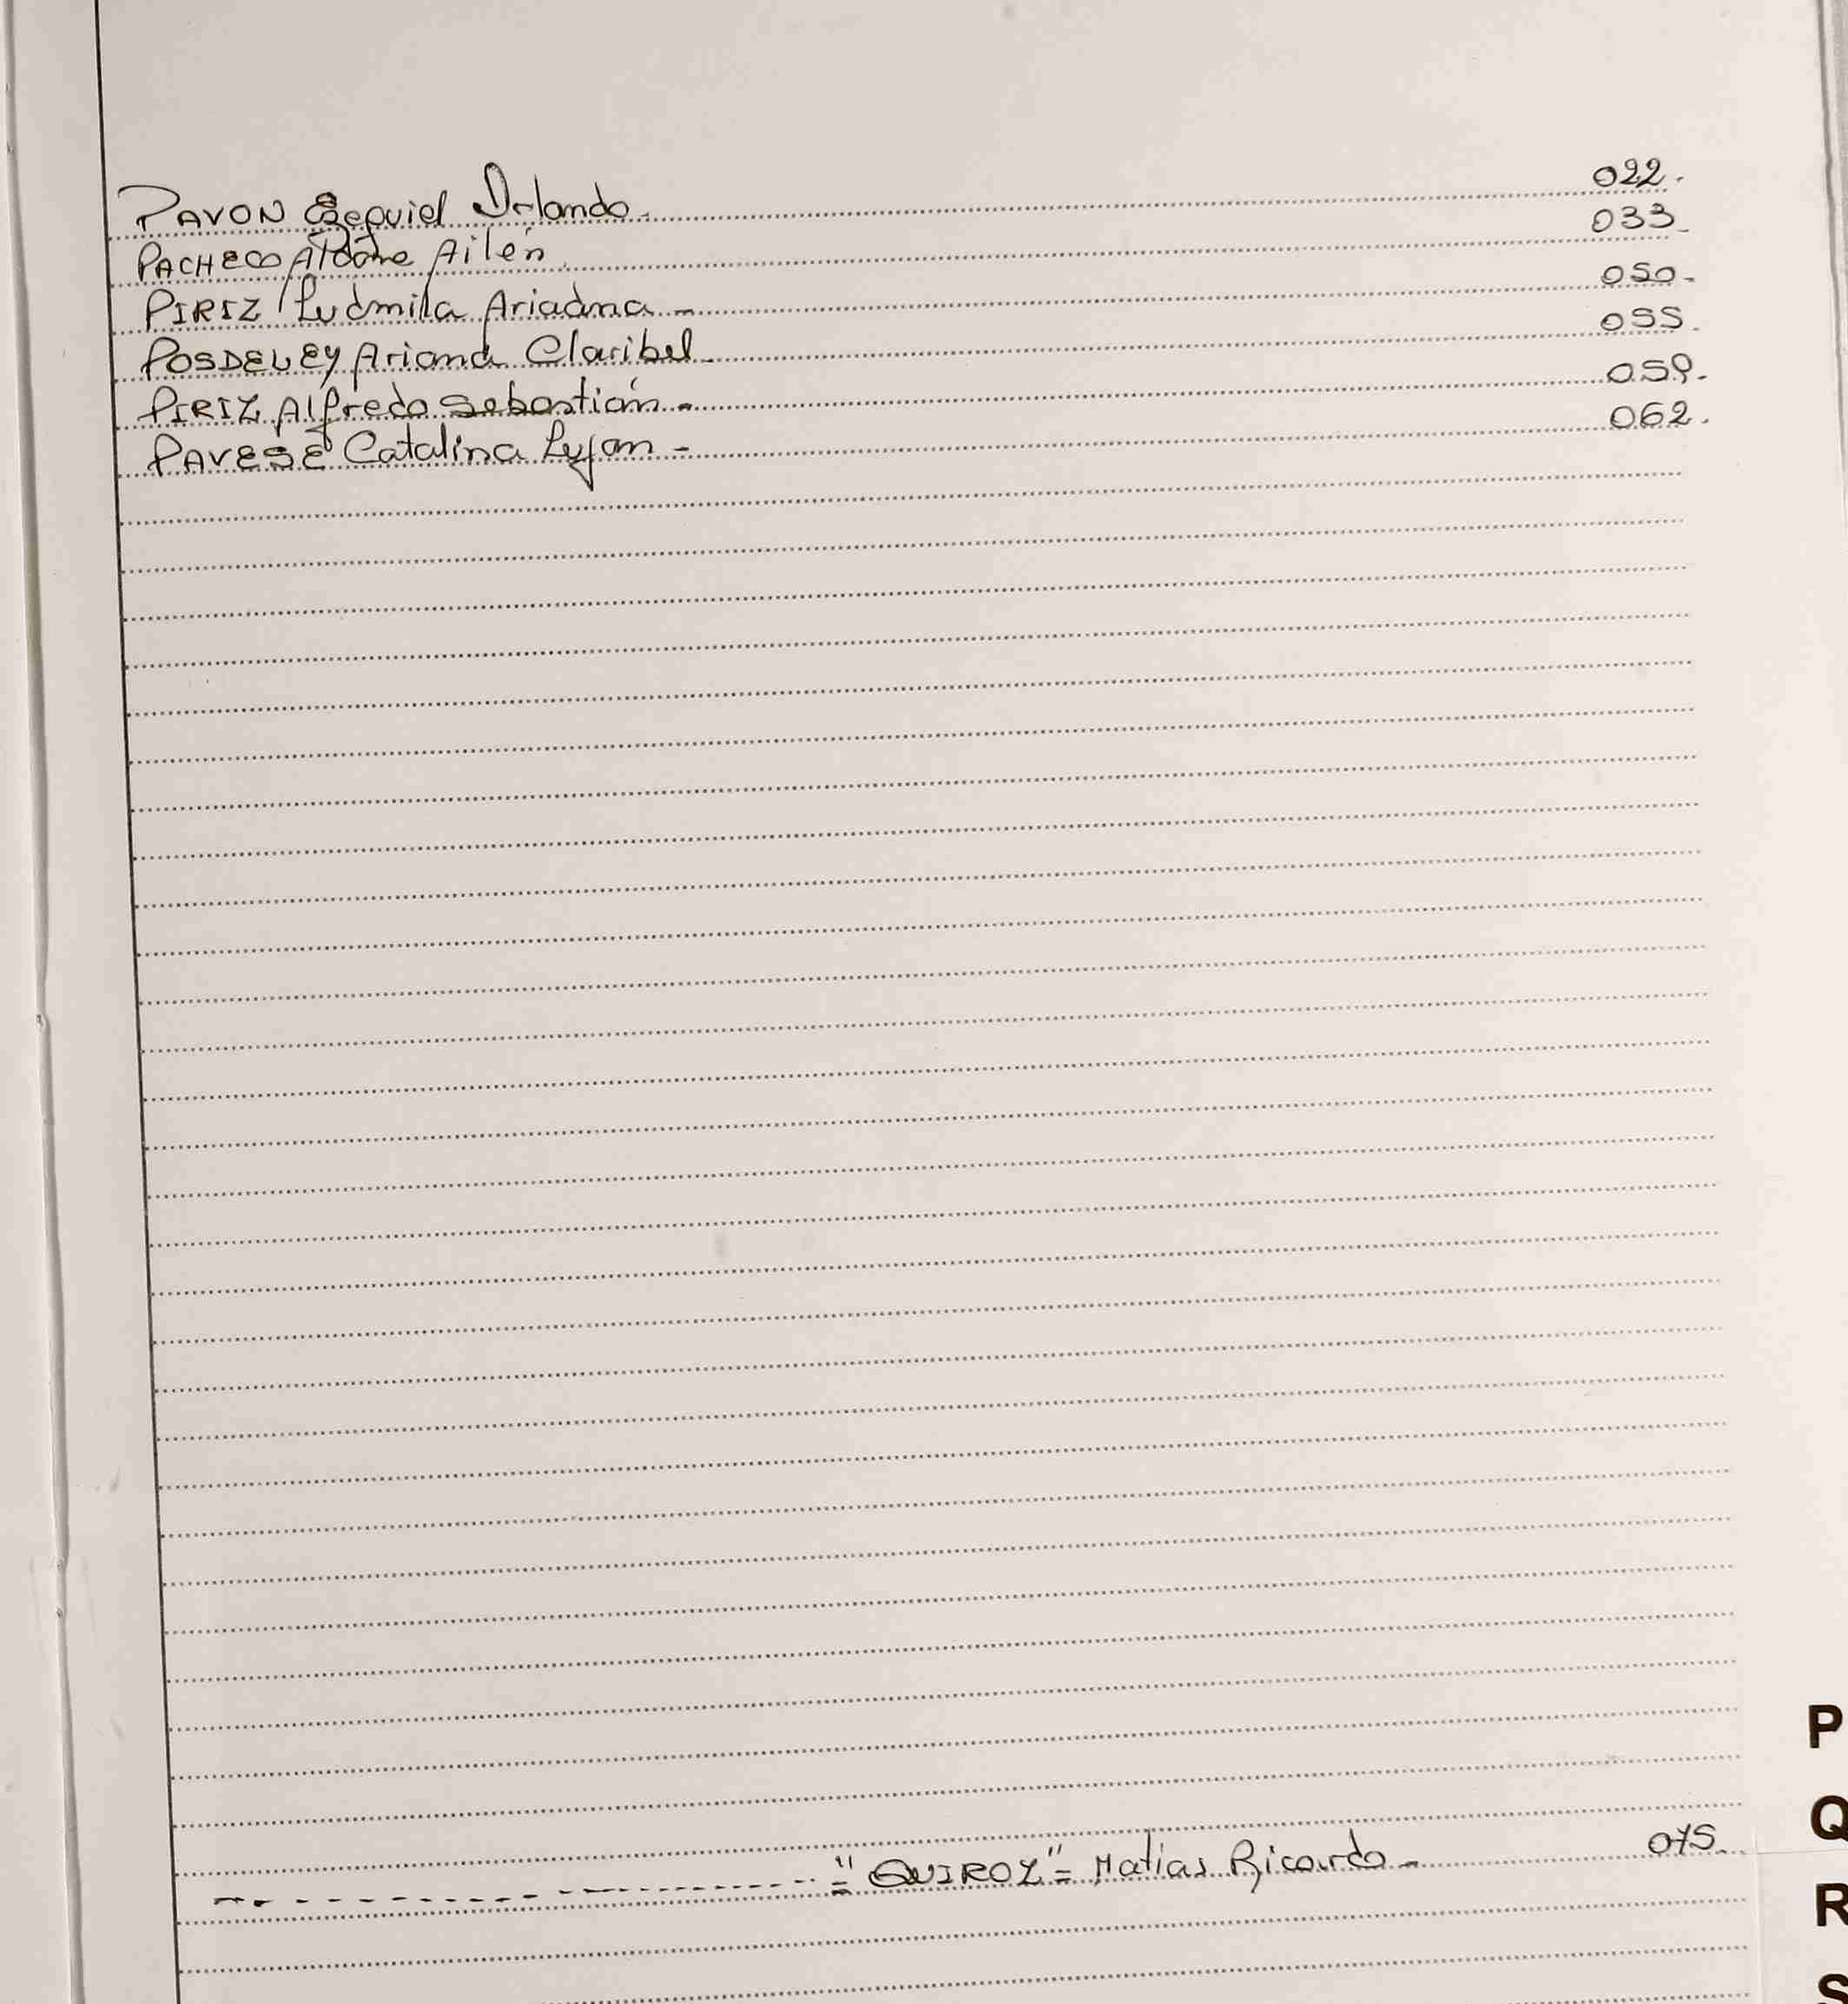 PAVON Ezequiel Orlando. 022.
PACHECO Aldana Ailén. 033.
PIRIZ Ludmila Ariadna - 050.
POSDELEY Ariana Claribel. 055.
PIRIZ Alfredo Sebastián - 059.
PAVESE Catalina Lujan - 062.
="QUIROZ"= Matias Ricardo - 075.
P
Q
R
S